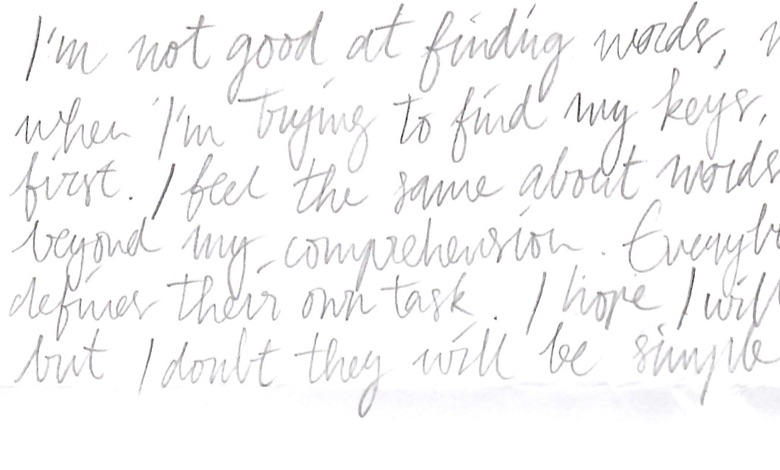 I'm not good at finding words,
when I'm trying to find my keys,
first. I feel the same about words
beyond my comprehension. Everyb
defines their own task. I hope I will
but I doubt they will be simple